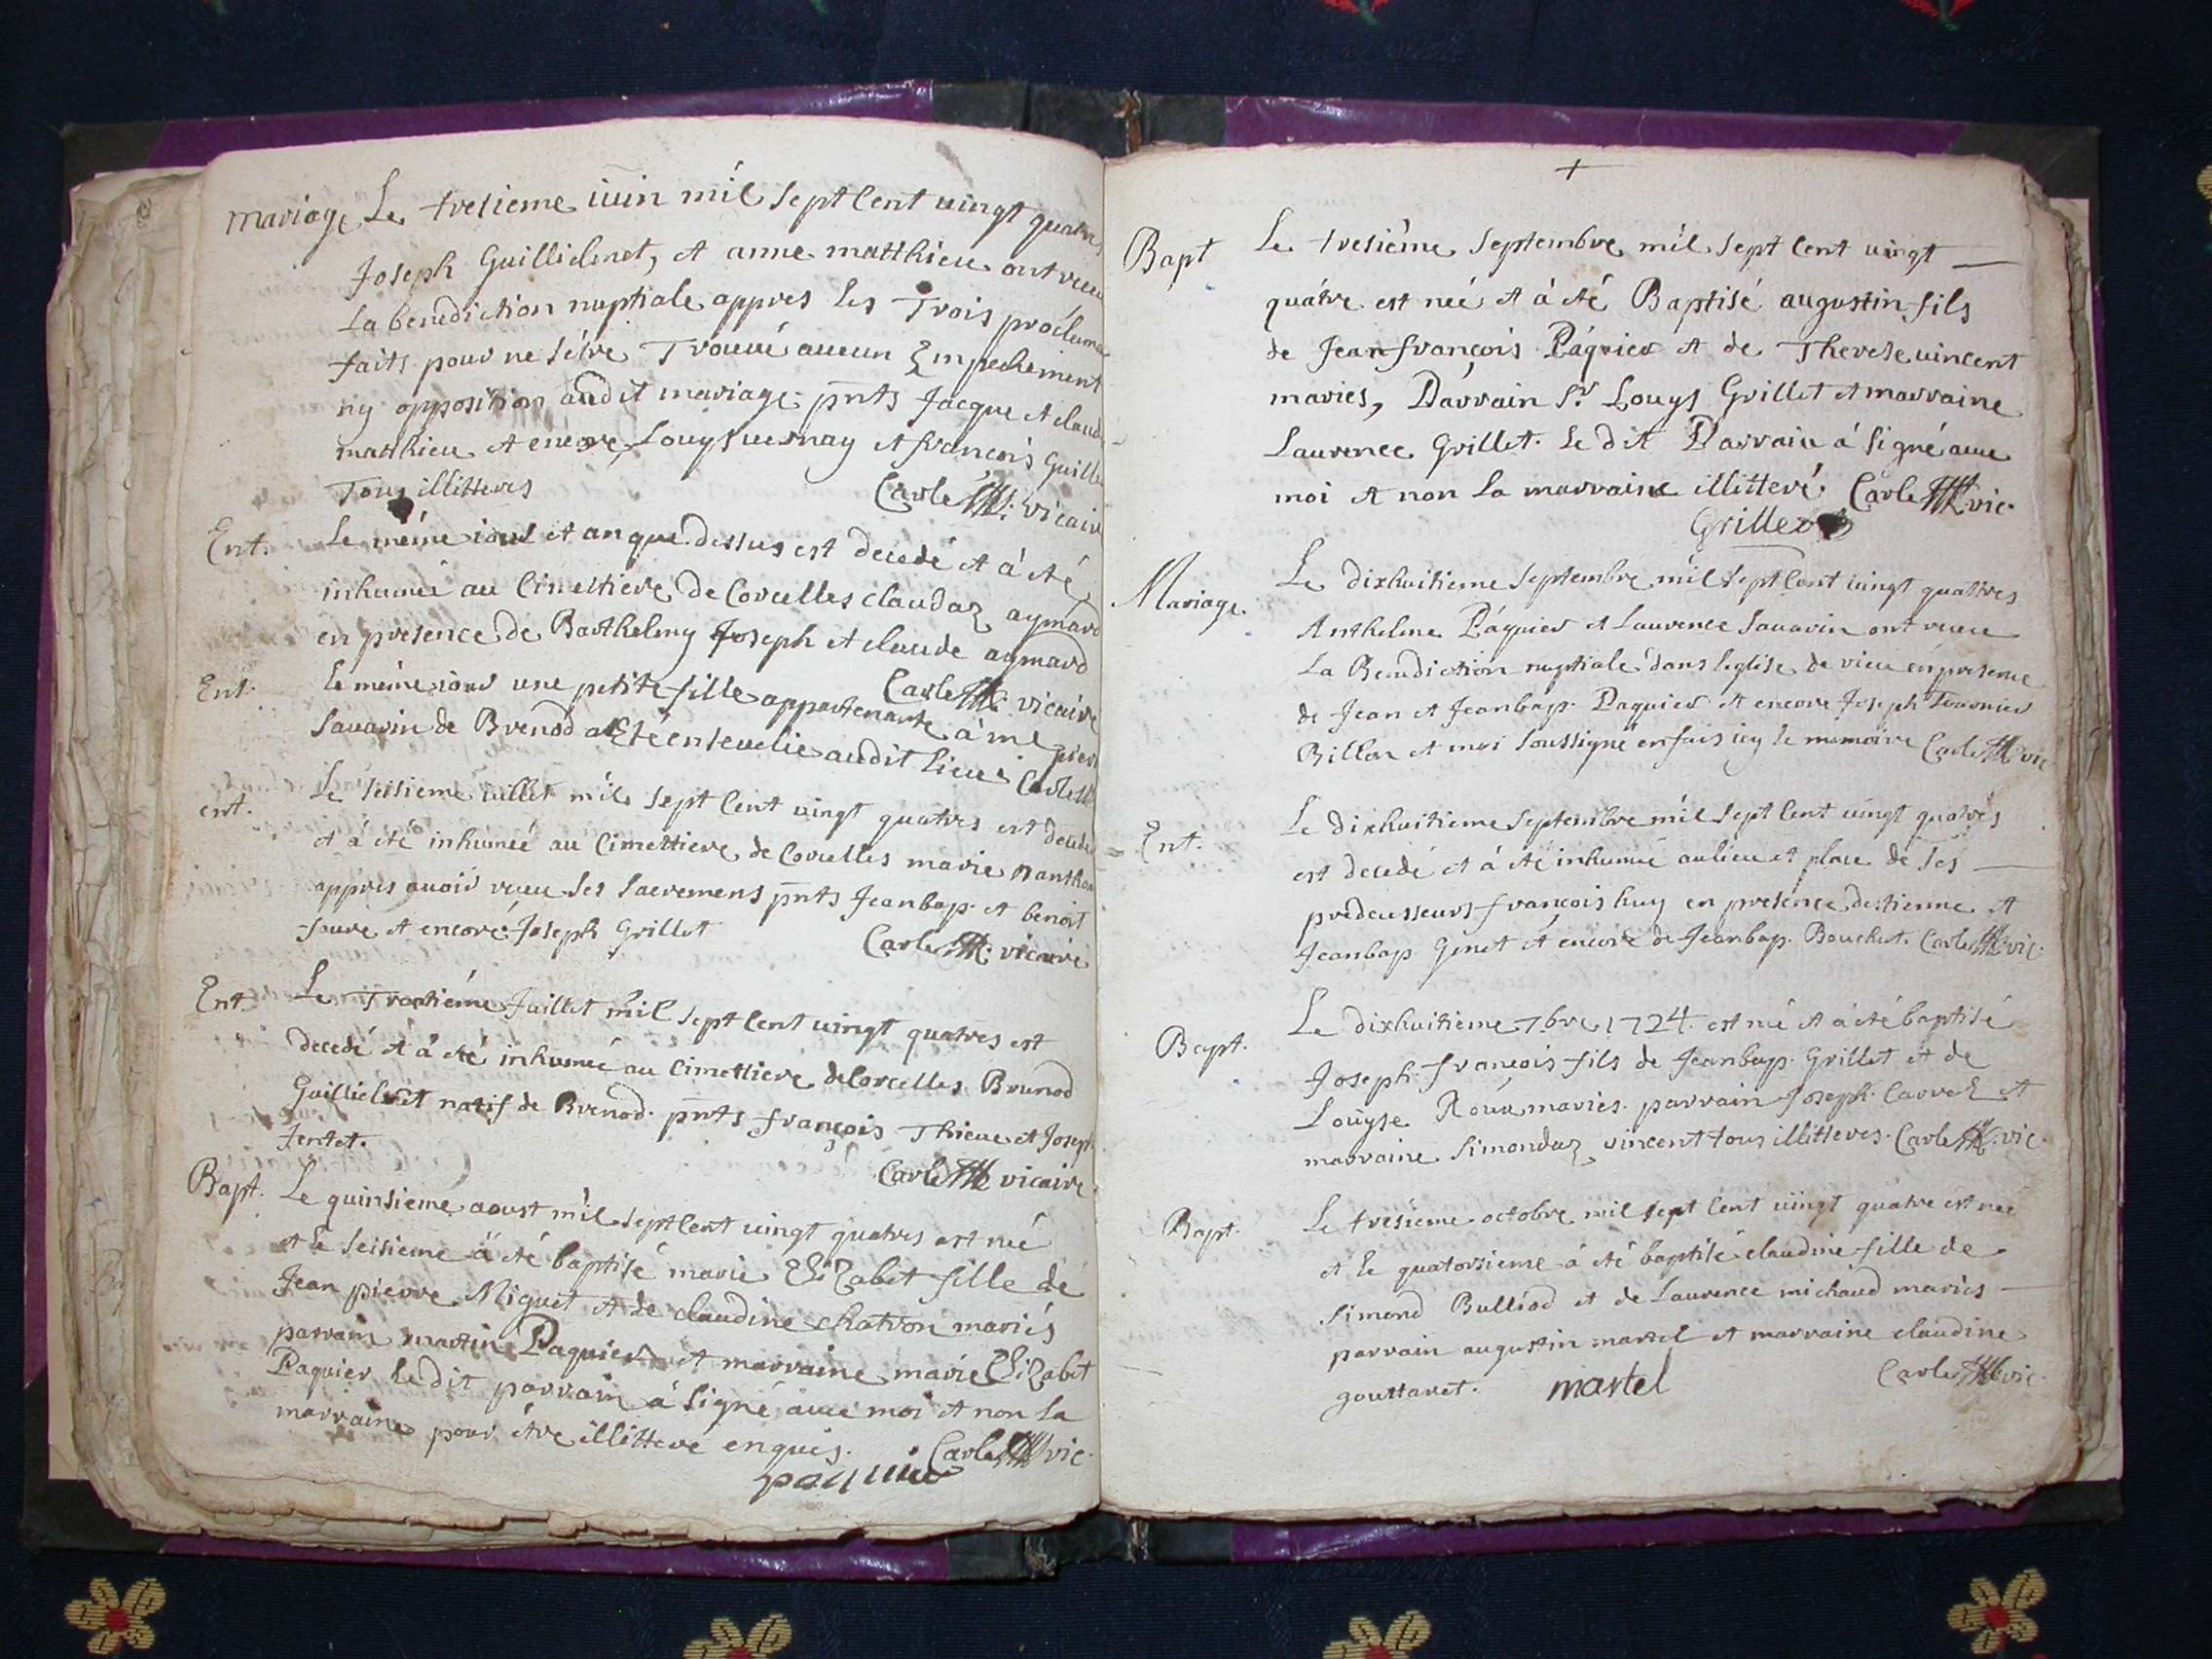 mariage Le tresieme iuin mil sept Cent vingt quatre
Joseph Guillielmet, et anne matthieu ont receu
La benediction nuptiale appres les Trois proclama
faits pour ne sétre Trouué aucun Empechement
ny opposition audit mariage pnts Jacque et claude
matthieu et encore Louys uernay et françois Guille
Tous illitteres Carle vicaire
Ent. Le méme iour et an que dessus est decedé et à eté
inhumée au Cimettiere de Corcelles claudaz aymard
en presence de Barthelemy Joseph et claude aymard
Carle vicaire
Ent. le méme iour une petite fille appartenante à me pier
Sauarin de Brenod a Eté enseuelie audit lieu Carle
ent. Le seisieme iullet mil sept Cent vingt quatres est decedé
et à eté inhumée au Cimettiere de Corcelles marie
appres auoir receu ses sacremens pnts Jeanbap. et benoit
foure et encore Joseph Grillet Carle vicaire
Ent. Le Trentiéme Juillet mil sept Cent vingt quatres est
decedé et à eté inhumée au Cimettiere de Corcelles Brunod
Guillielmet natif de Brenod. pnts françois Thieue et Joseph
Jentet. Carle vicaire
Bapt. Le quinsieme aoust mil sept Cent vingt quatres est née
et le seisieme à eté baptisé marie Elizabet fille de
Jean pierre Miguet et de claudine chatron mariés
parrain martin Paquier et marraine marie Elizabet
Paquier le dit parrain à signé auec moi et non la
marraine pour étre illittere enquis. Carle vic.
paquier
+
Bapt Le tresiéme Septembre mil sept Cent vingt
quátre est neé et à eté Baptisé augustin fils
de Jean françois Páquier et de Therese uincent
maries, Parrain Sr Louys Grillet et marraine
Laurence Grillet. Le dit Parrain á signé auec
moi et non la marraine illitteré Carle vic.
Grillet
Mariage. Le dixhuitieme Septembre mil sept Cent vingt quattres
Anthelme Páquier et Laurence Sauarin ont receu
La Benediction nuptiale dans leglise de vieu en presence
de Jean et Jeanbap. Paquier et encore Joseph Tournier
Billon et moi soussigné en fais icy le memoire Carle vic
Ent. Le dixhuitieme Septembre mil sept Cent vingt quatrés
est decedé et à eté inhumée au lieu et place de ses
predecesseurs françois huy en presence destienne et
Jeanbap. Genet et encore de Jeanbap. Bouchet. Carle vic.
Bapt. Le dixhuitieme 7bre 1724. est né et à eté baptisé
Joseph françois fils de Jeanbap. Grillet et de
Louyse Roux maries. parrain Joseph Carrel et
marraine Simondaz vincent tous illitteres. Carle vic.
Bapt. Le tresieme octobre mil sept Cent vingt quatre est neé
et le quatorsieme à eté baptisé claudine fille de
Simond Bulliod et de Laurence michaud mariés
parrain augustin martel et marraine claudine
gouttaret. martel Carle vic.